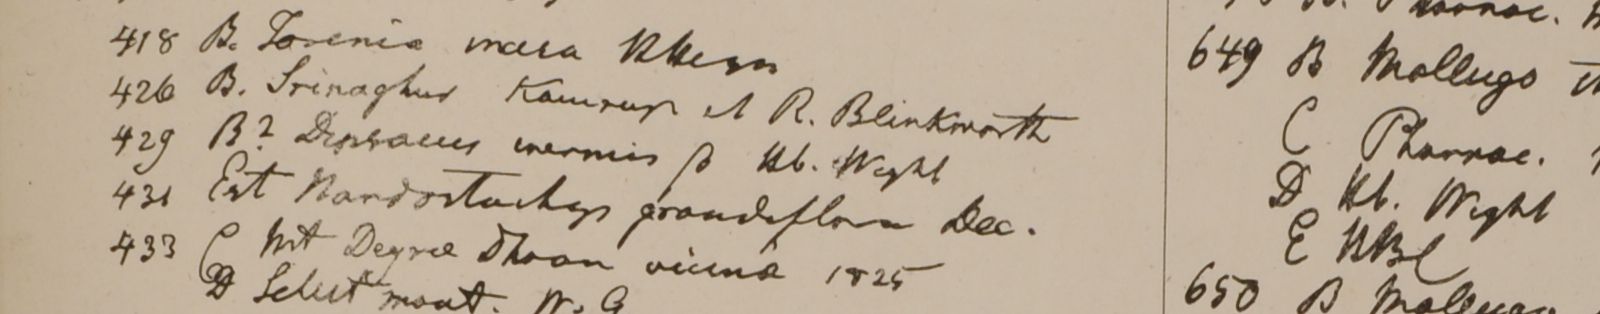 418 B. Torenia Hb
426 B. Srinaghur Kamrup et R. Blinkworth
429 B? Dipsacus inermis β Hb. Wight
431 Est Nardostachys grandiflora Dec.
433 C Mt Degree Dhoon vicina 1825
D Selust mont. W. G
Pharnac.
649 B Mollugo
C Pharnac.
D Hb. Wight
E HBC
650 B Mollugo